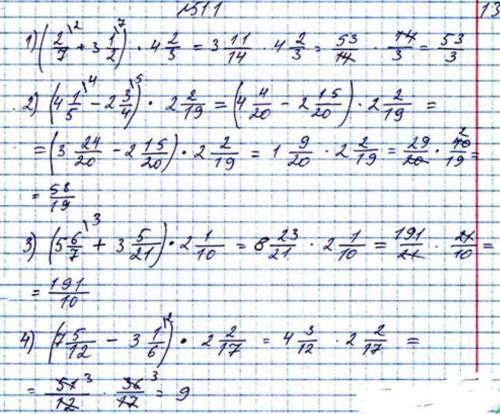 №511 13
1) (2/7 \2 + 3 1/2 \7) · 4 2/3 = 3 11/14 · 4 2/3 = 53/14 · 14/3 = 53/3
2) (4 1/5 \4 − 2 3/4 \5) · 2 2/19 = (4 4/20 − 2 15/20) · 2 2/19 =
= (3 24/20 − 2 15/20) · 2 2/19 = 1 9/20 · 2 2/19 = 29/20 · 40 2/19 =
= 58/19
3) (5 6/7 \3 + 3 5/21) · 2 1/10 = 8 23/21 · 2 1/10 = 191/21 · 21/10 =
= 191/10
4) (7 5/12 − 3 1/6 \2) · 2 2/17 = 4 3/12 · 2 2/17 =
= 51 3/12 · 36 3/17 = 9